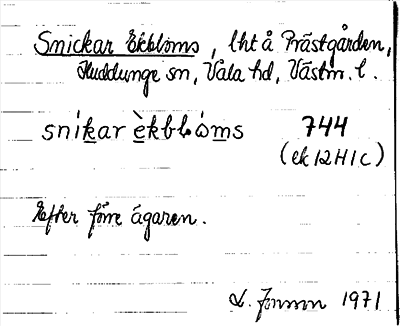 Snickar Ekbloms, lht å Prästgården,
Huddunge sn, Vala hd, Västm. l.
sníkar èkblòms 744
(ek 12H1c)
Efter förre ägaren.
L. Jonsson 1971